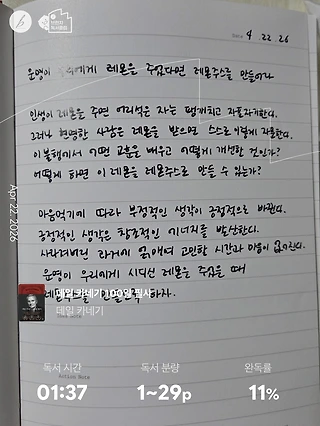 Date 4. 22. 26
운명이 우리에게 레몬을 주었다면 레몬주스를 만들어라
인생이 레몬을 주면 어리석은 자는 팽개치고 자포자기한다.
그러나 현명한 사람은 레몬을 받으면 스스로 이렇게 자문한다.
이 불행에서 어떤 교훈을 배우고 어떻게 개선할 것인가?
어떻게 하면 이 레몬을 레몬주스로 만들 수 있는가?
마음먹기에 따라 부정적인 생각이 긍정적으로 바뀐다.
긍정적인 생각은 창조적인 에너지를 발산한다.
사라져버린 과거에 얽매여 고민할 시간과 마음이
운명이 우리에게 시디신 레몬을 주었을 때
레몬주스를 하자.
데일 카네기 100일 필사
데일 카네기
Apr 22, 2026
독서 시간
01:37
독서 분량
1~29p
완독률
11%
Action Note